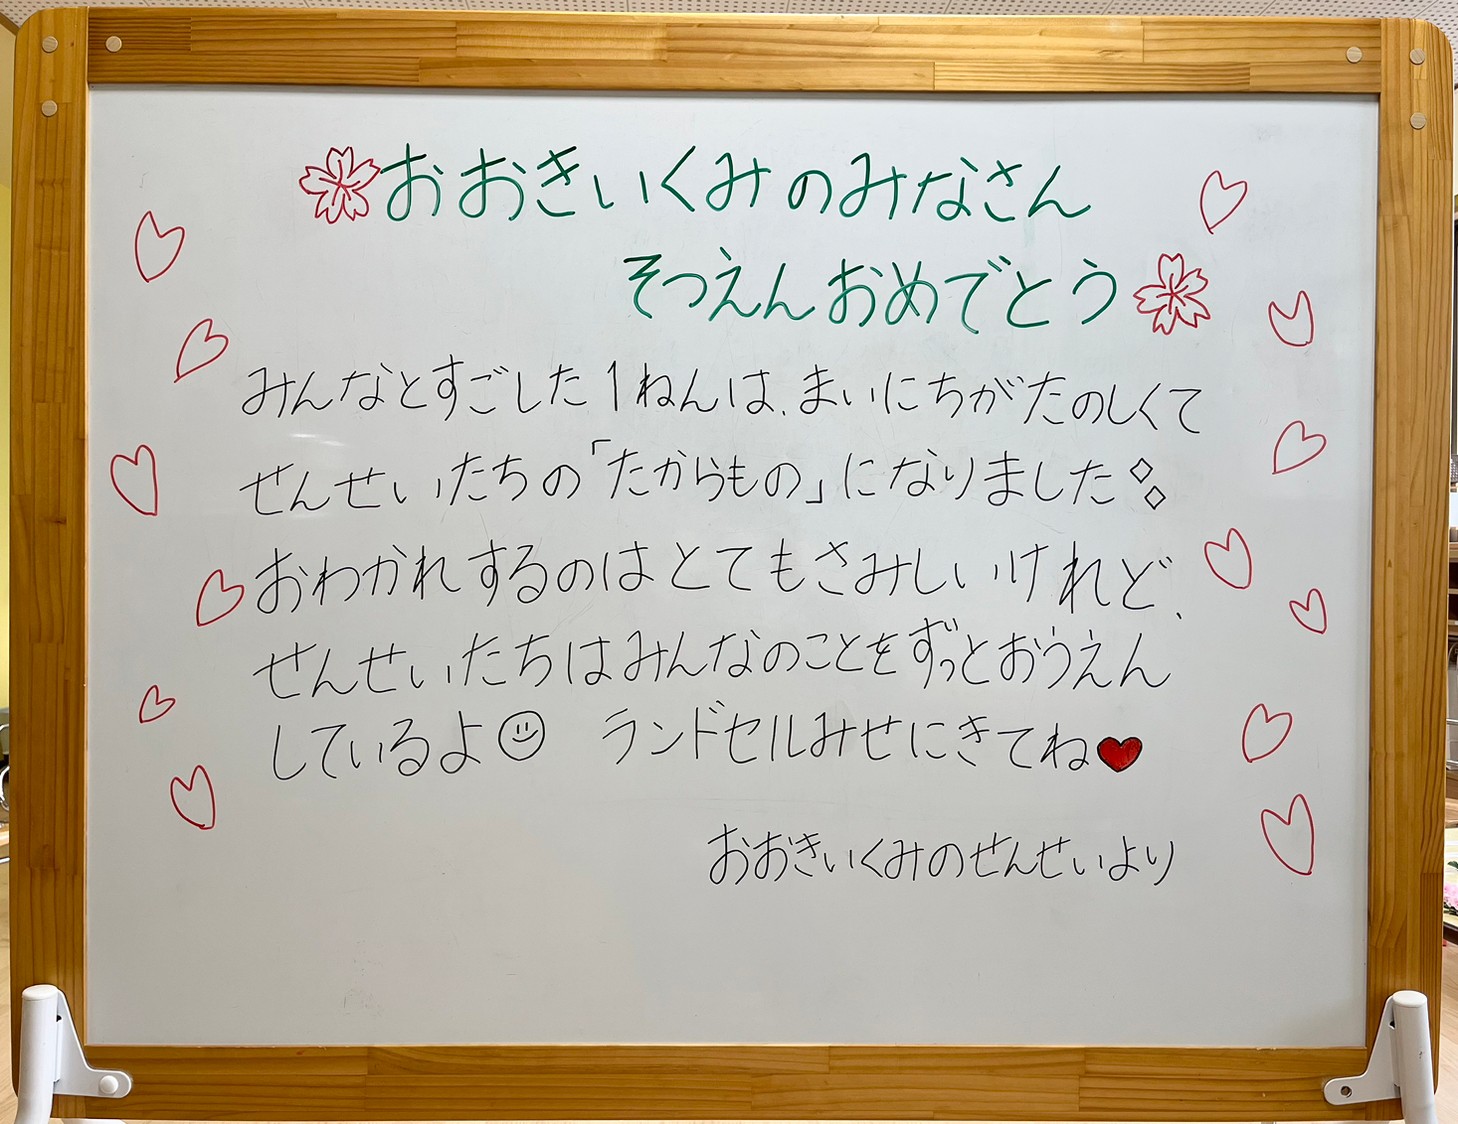 おおきいくみのみなさん
そつえんおめでとう
みんなとすごした1ねんは、まいにちがたのしくて
せんせいたちの「たからもの」になりました
おわかれするのはとてもさみしいけれど、
せんせいたちはみんなのことをずっとおうえん
しているよ ランドセルみせにきてね
おおきいくみのせんせいより